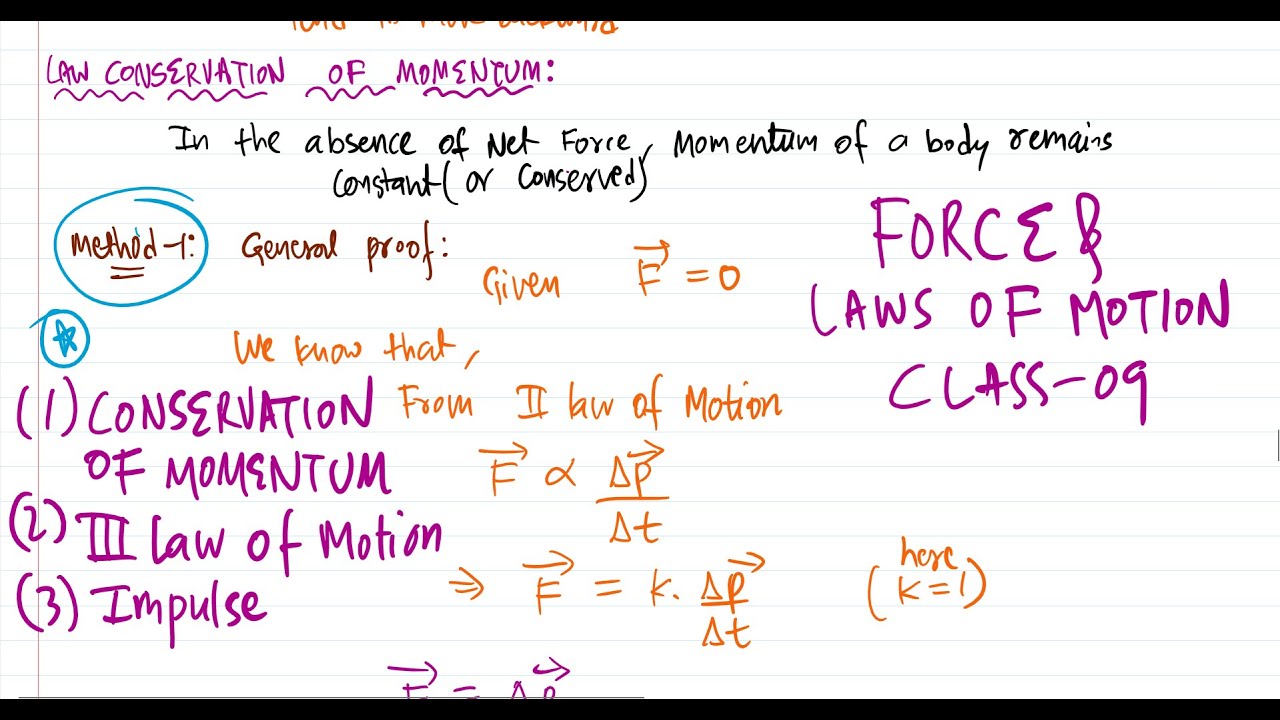 LAW CONSERVATION OF MOMENTUM:
In the absence of Net Force, Momentum of a body remains
constant (or conserved)
Method-1: General proof:
Given F⃗ = 0
We know that,
From II law of Motion
F⃗ ∝ Δp⃗/Δt
⇒ F⃗ = k. Δp⃗/Δt (here k=1)
F⃗ = Δp⃗
FORCE &
LAWS OF MOTION
CLASS-09
(1) CONSERVATION
OF MOMENTUM
(2) III law of Motion
(3) Impulse